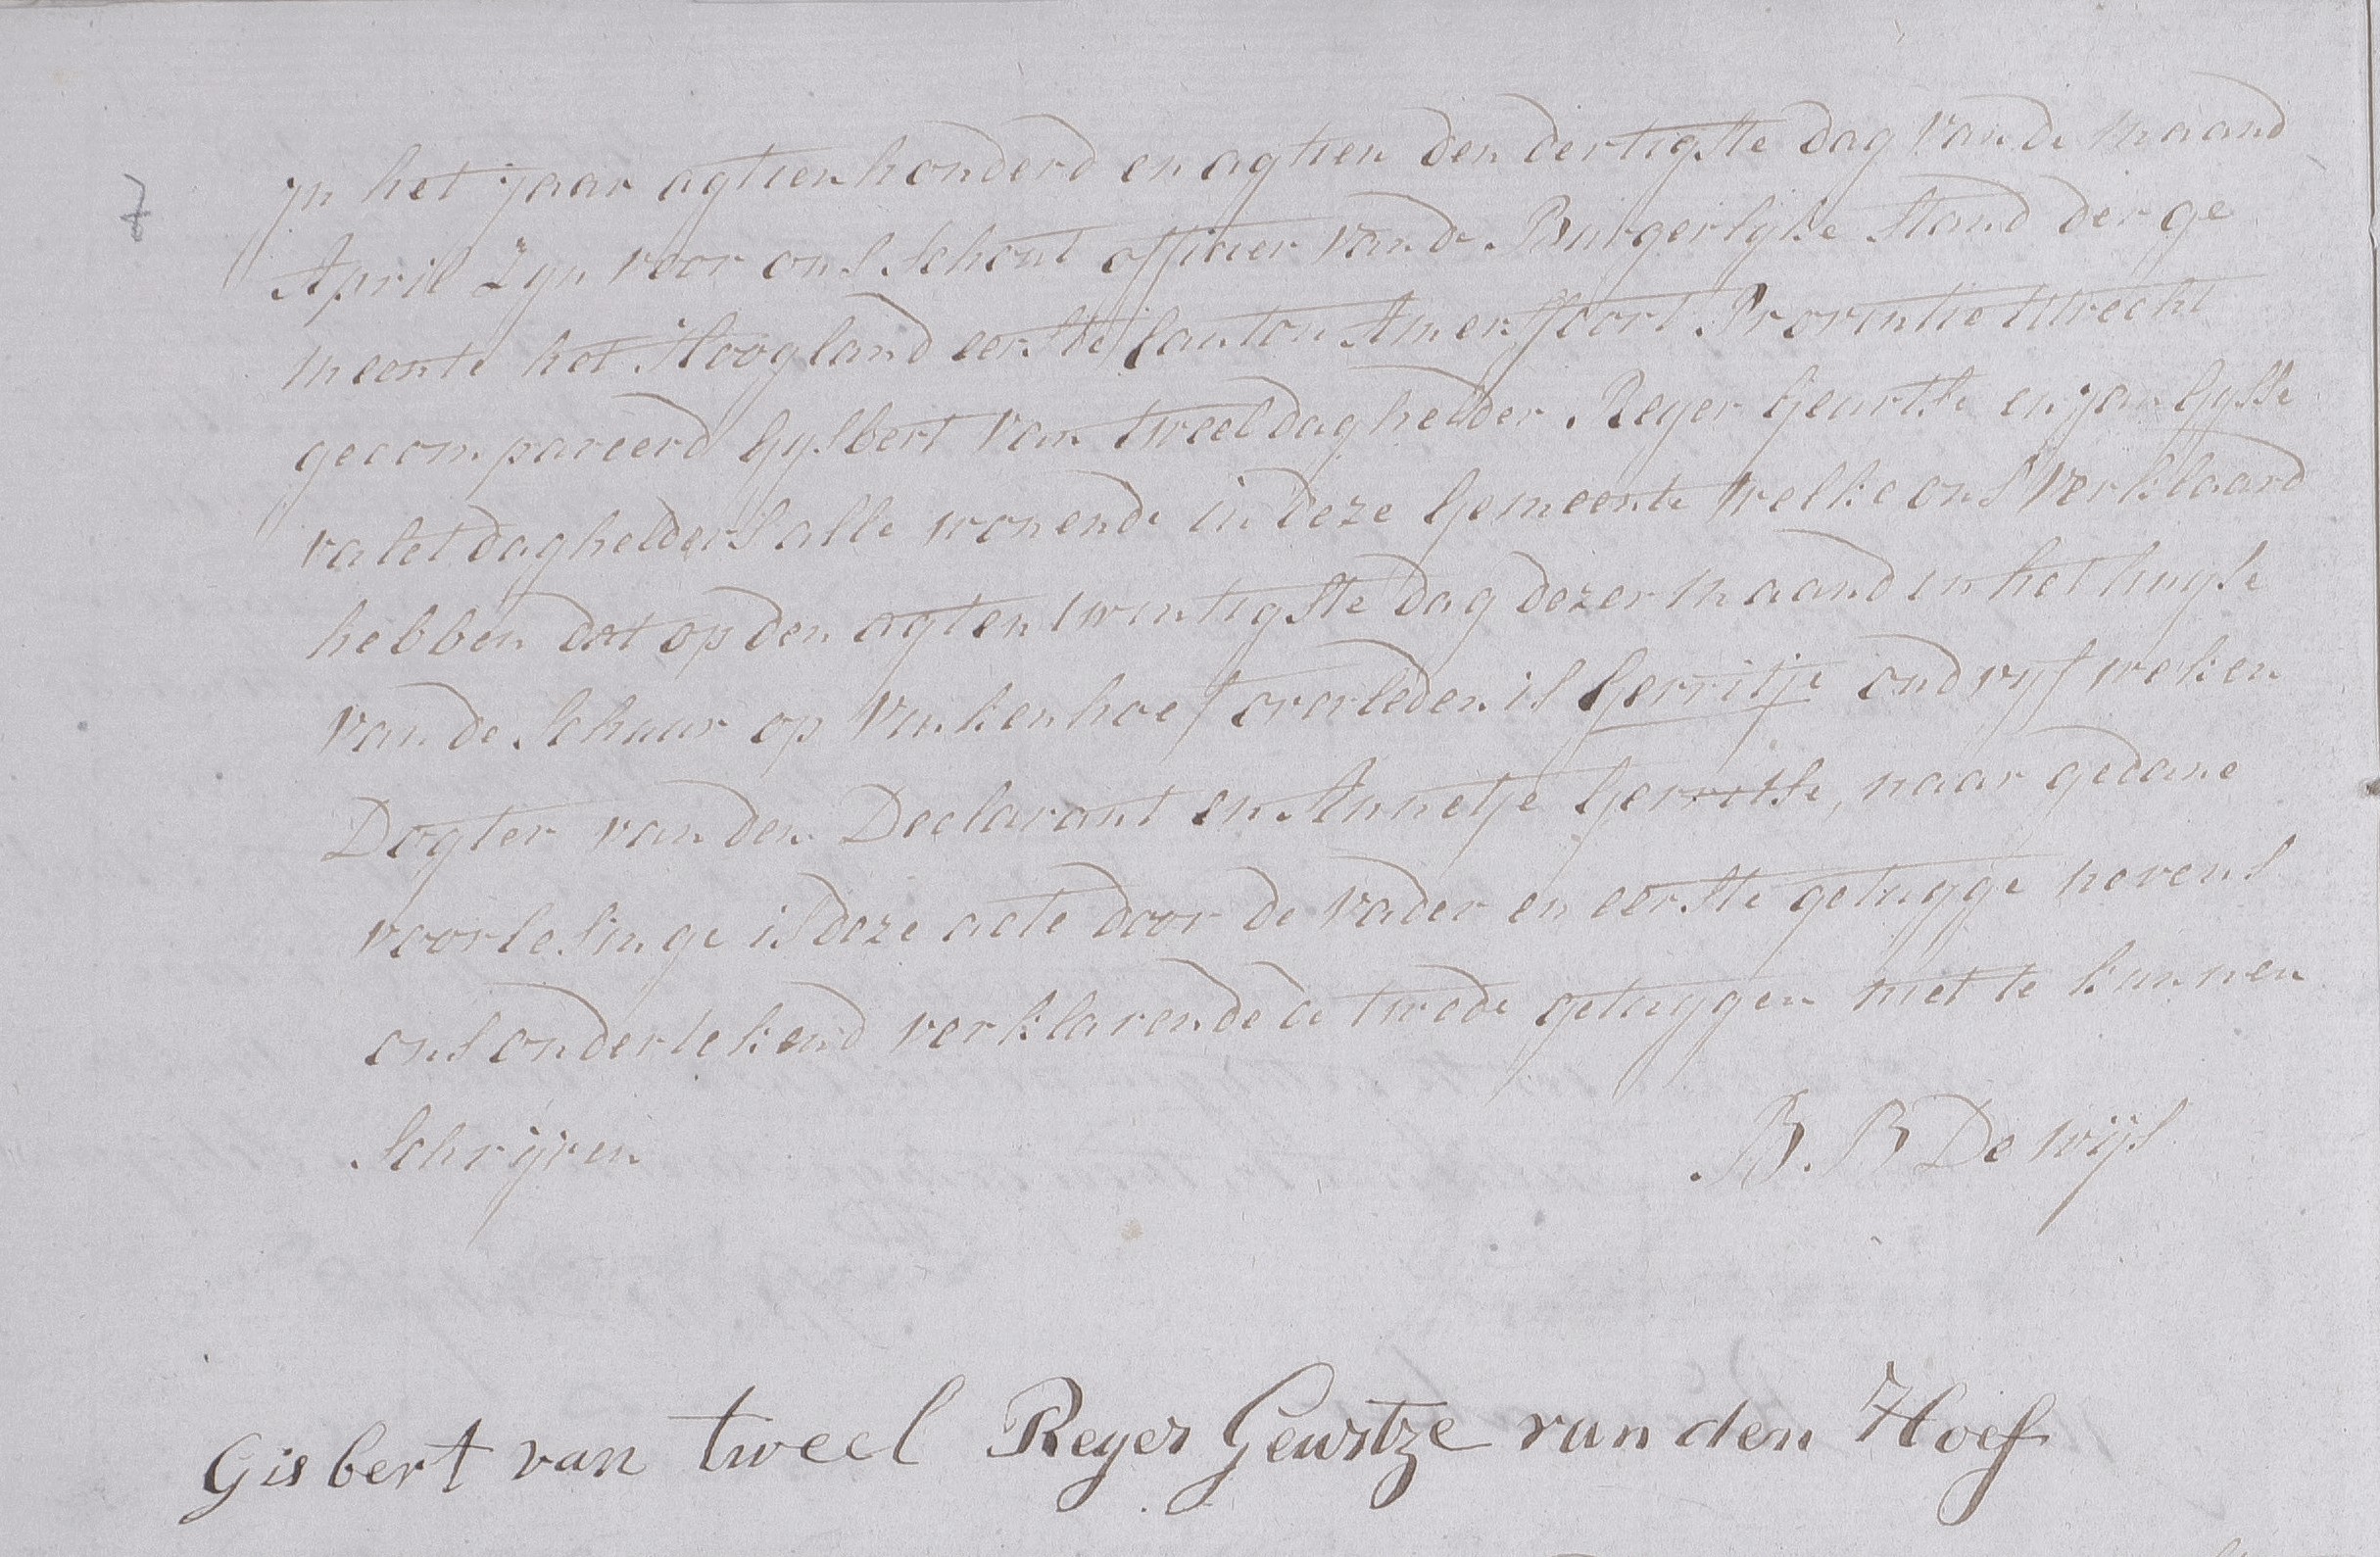 7
jn het jaar agtienhonderd en agtien den dertigste dag van de maand
April Zyn voor ons Schout officier van de Burgerlyke Stand der ge
meente het Hoogland eerste Canton Amersfoort Provintie Utrecht
gecompareerd Gysbert van tweel daghelder Reyer Geurtse en jan Gysse
valet daghelders alle wonende in deze Gemeente welke ons verklaard
hebben dat op den agten twintigste dag dezer maand in het huyse
van de Schuur op Vinkenhoef overleden is Gerritje oud vyf weken
Dogter van den Declarant en Annetje Gerritse, naar gedane
voorlesinge is deze acte door de vader en eerste getuyge nevens
ons ondertekend verklarende de twede getuygen niet te kunnen
Schrijven
B. B De wijs
Gisbert van tweel Reyer Geurtze van den Hoef